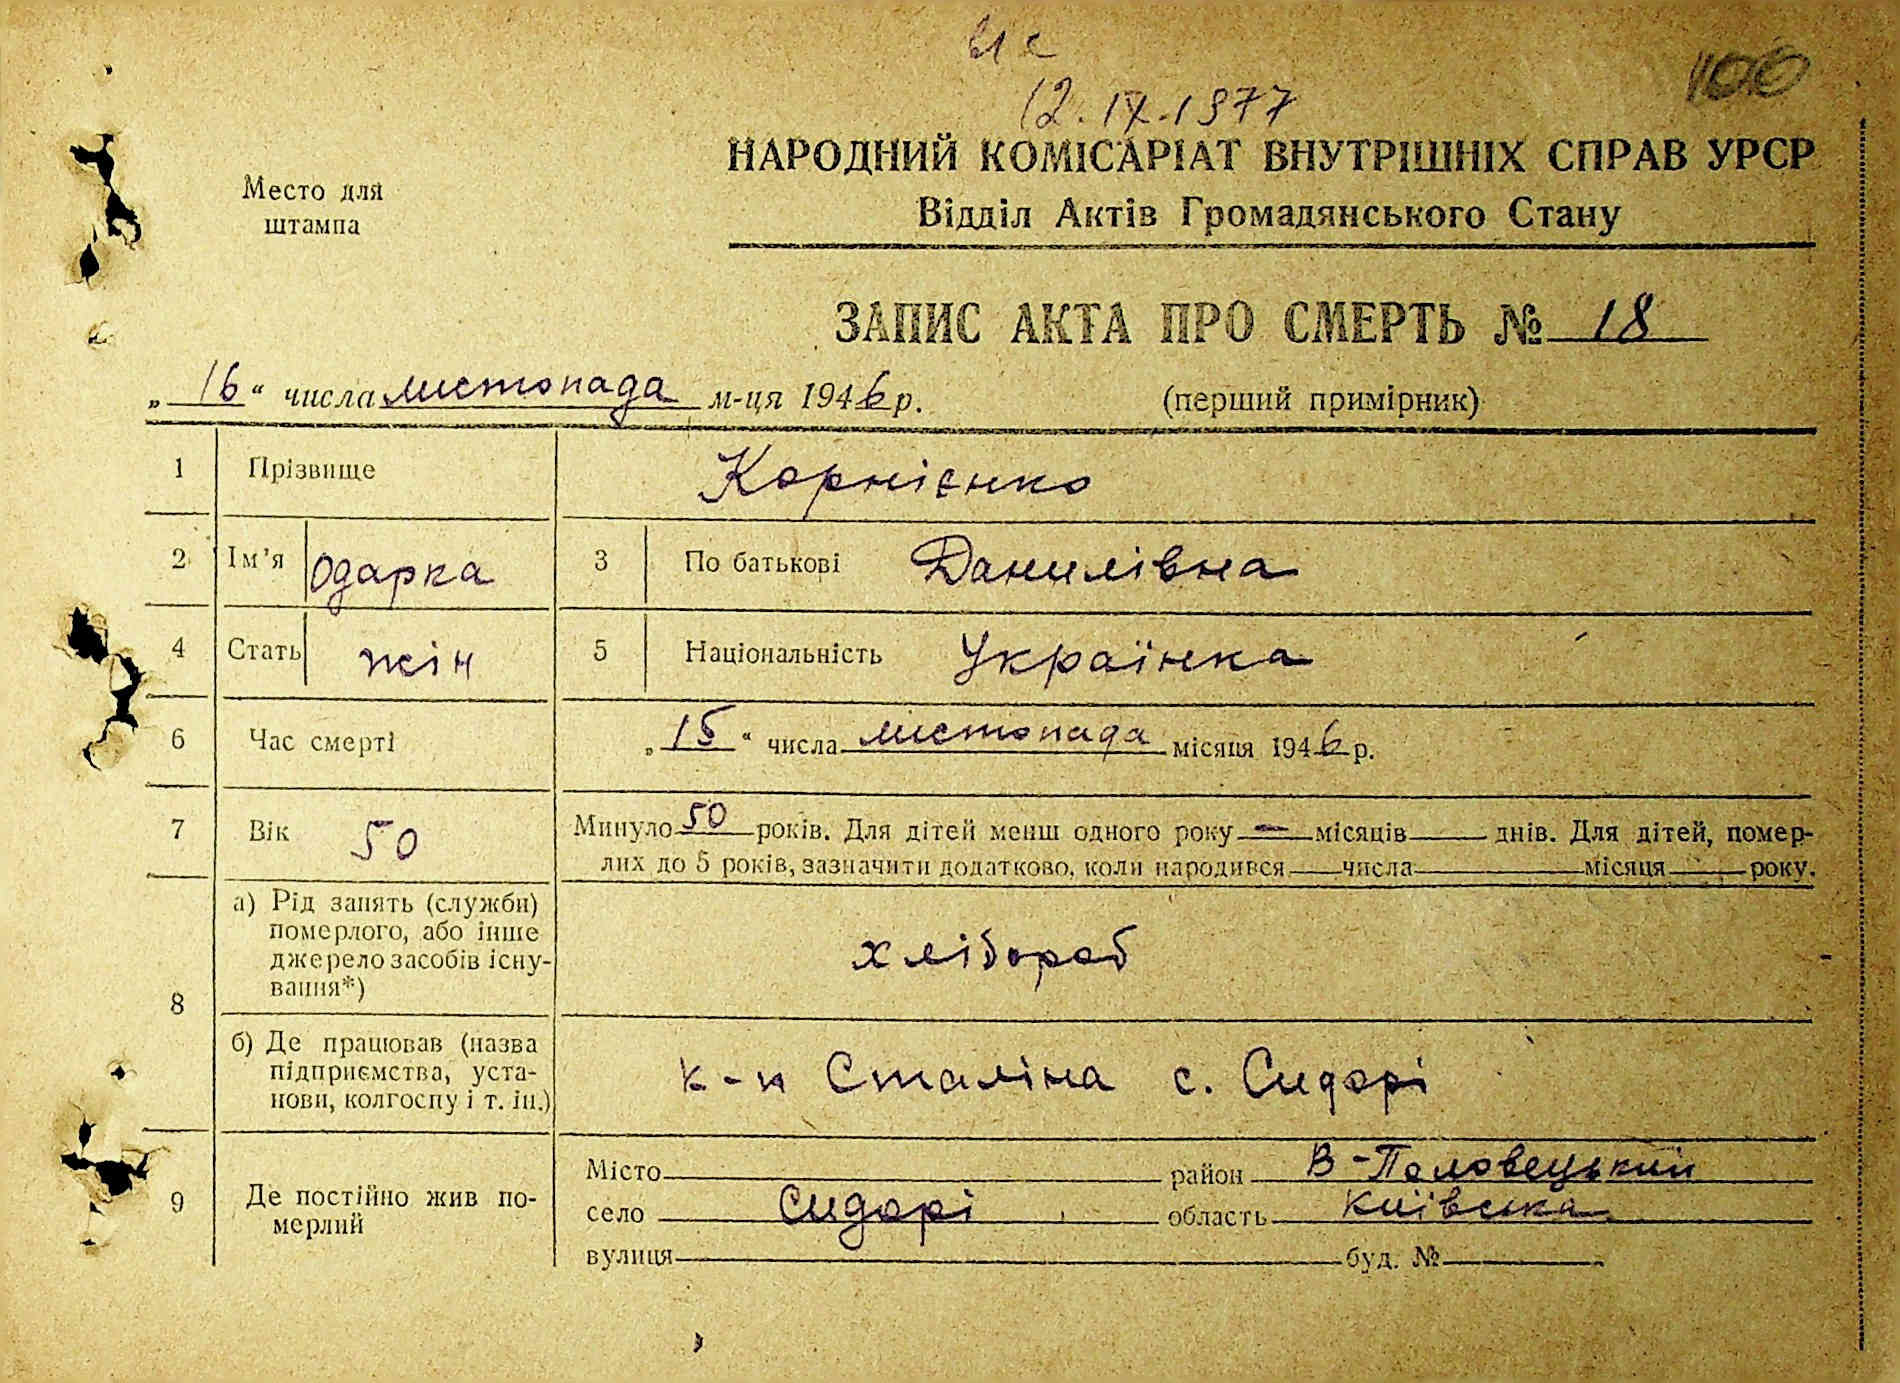 12.IX.1977
100
Место для
штампа
НАРОДНИЙ КОМІСАРІАТ ВНУТРІШНІХ СПРАВ УРСР
Відділ Актів Громадянського Стану
ЗАПИС АКТА ПРО СМЕРТЬ № 18
„16“ числа листопада м-ця 1946 р. (перший примірник)
1 Прізвище Корнієнко
2 Ім'я Одарка 3 По батькові Данилівна
4 Стать жін 5 Національність Українка
6 Час смерті „15“ числа листопада місяця 1946 р.
7 Вік 50 Минуло 50 років. Для дітей менш одного року — місяців днів. Для дітей, помер-
лих до 5 років, зазначити додатково, коли народився числа місяця року.
8 а) Рід занять (служби)
померлого, або інше
джерело засобів існу-
вання*)
хлібороб
б) Де працював (назва
підприємства, уста-
нови, колгоспу і т. ін.)
к-п Сталіна с. Сидорі
9 Де постійно жив по-
мерлий
Місто район В-Половецький
село Сидорі область Київська
вулиця буд. №